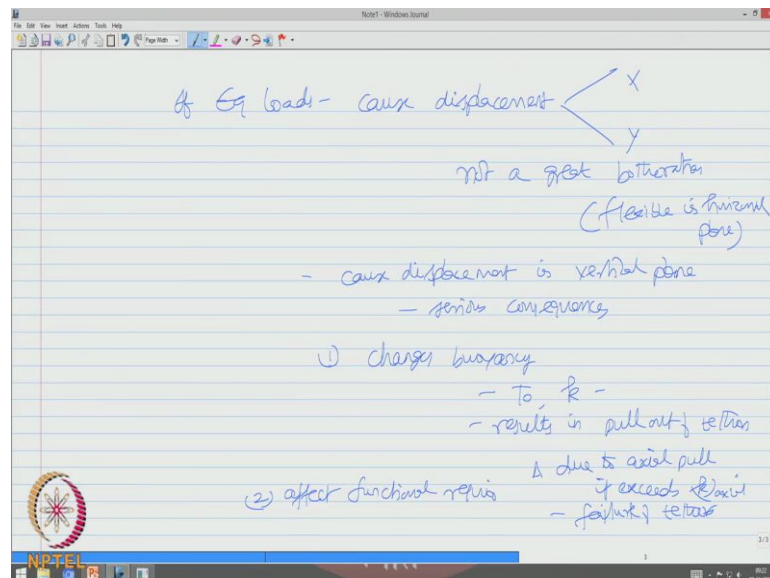 Note1 - Windows Journal
File Edit View Insert Actions Tools Help
Page Width
If Eq loads - cause displacement
X
Y
not a great botheration
(flexible is horizontal
plane)
- cause displacement is vertical plane
- serious consequences
① changes buoyancy
- To, k -
- results in pull out of tethers
Δ due to axial pull
if exceeds axial
- failure of tethers
② affect functional requis
NPTEL
3/3
3